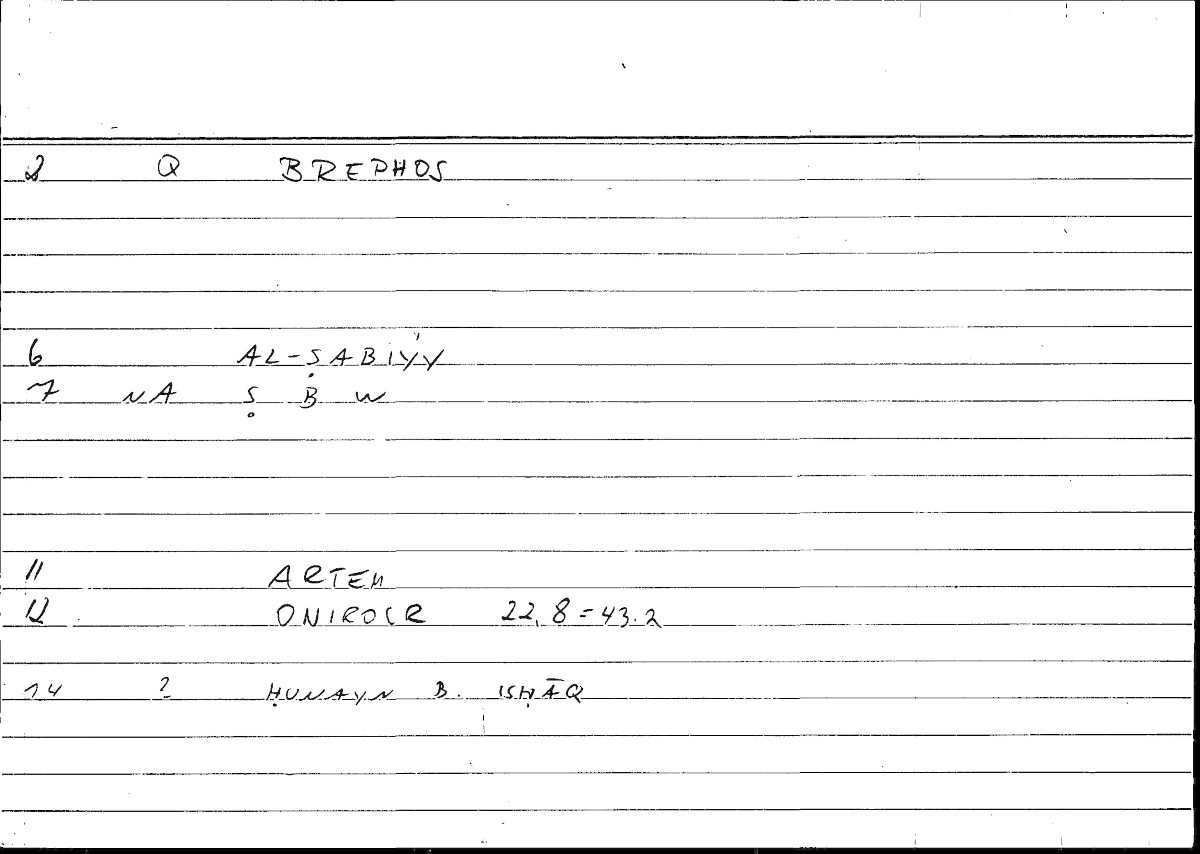 2 Q BREPHOS
6 AL-ṢABIYY
7 NA Ṣ B W
11 ARTEM
12 ONIROCR 22,8=43.2
14 ? ḤUNAYN B. ISḤĀQ